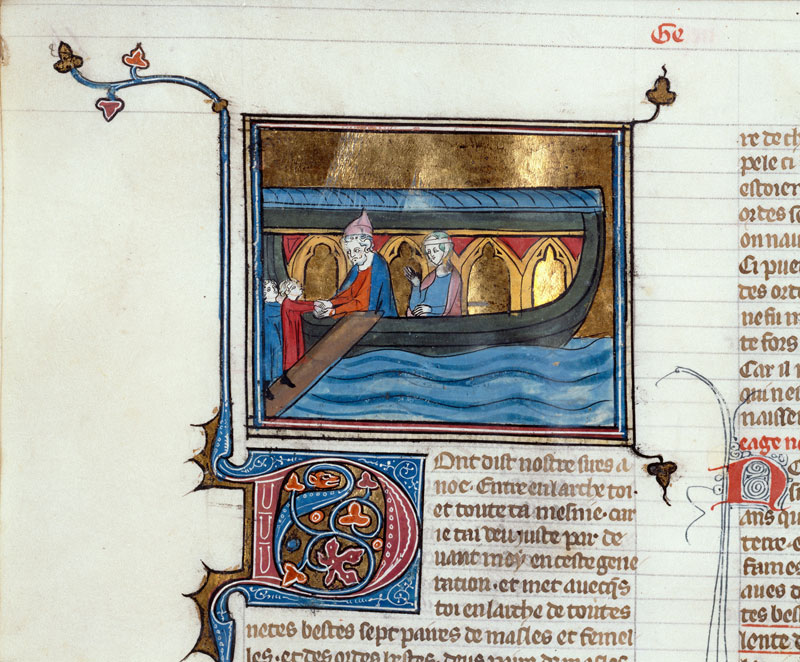 Ge
Dont dist nostre sires a
noe. Entre en larche toi.
et toute ta mesnie. car
ie tai veu juste par de
uant moy en ceste gene
ration. et met auecqs
toi en larche de toutes
netes bestes sept paires de masles et femel
les. et des ordes bestes. deus
re de ch
pele ci
estoien
ordes se
on nau
Ci pue
des ord
ne fu m
te fors
Car il n
qui ne
naissen
eage no
ans qu
terre. e
fames
aues d
tes bes
lente d